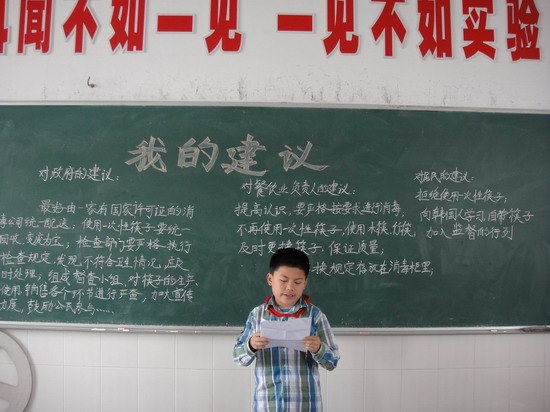 百闻不如一见 一见不如实验
我的建议
对政府的建议：
最好由一家有国家许可证的消
毒公司统一配送；使用一次性筷子要统一
回收,
检查部门要严格执行
检查规定,发现不符合卫生情况,应及
时处理；组成督查小组,对筷子的生产、
使用、销售各个环节进行严查；加大宣传
力度,鼓励公民参与……
对餐饮业负责人的建议：
提高认识，要严格按要求进行消毒，
不再使用一次性筷子,使用木筷、
及时更换筷子，保证质量，
换规定存放在消毒柜里,
对居民的建议：
拒绝使用一次性筷子
向韩国人学习自带筷子
加入监督的行列